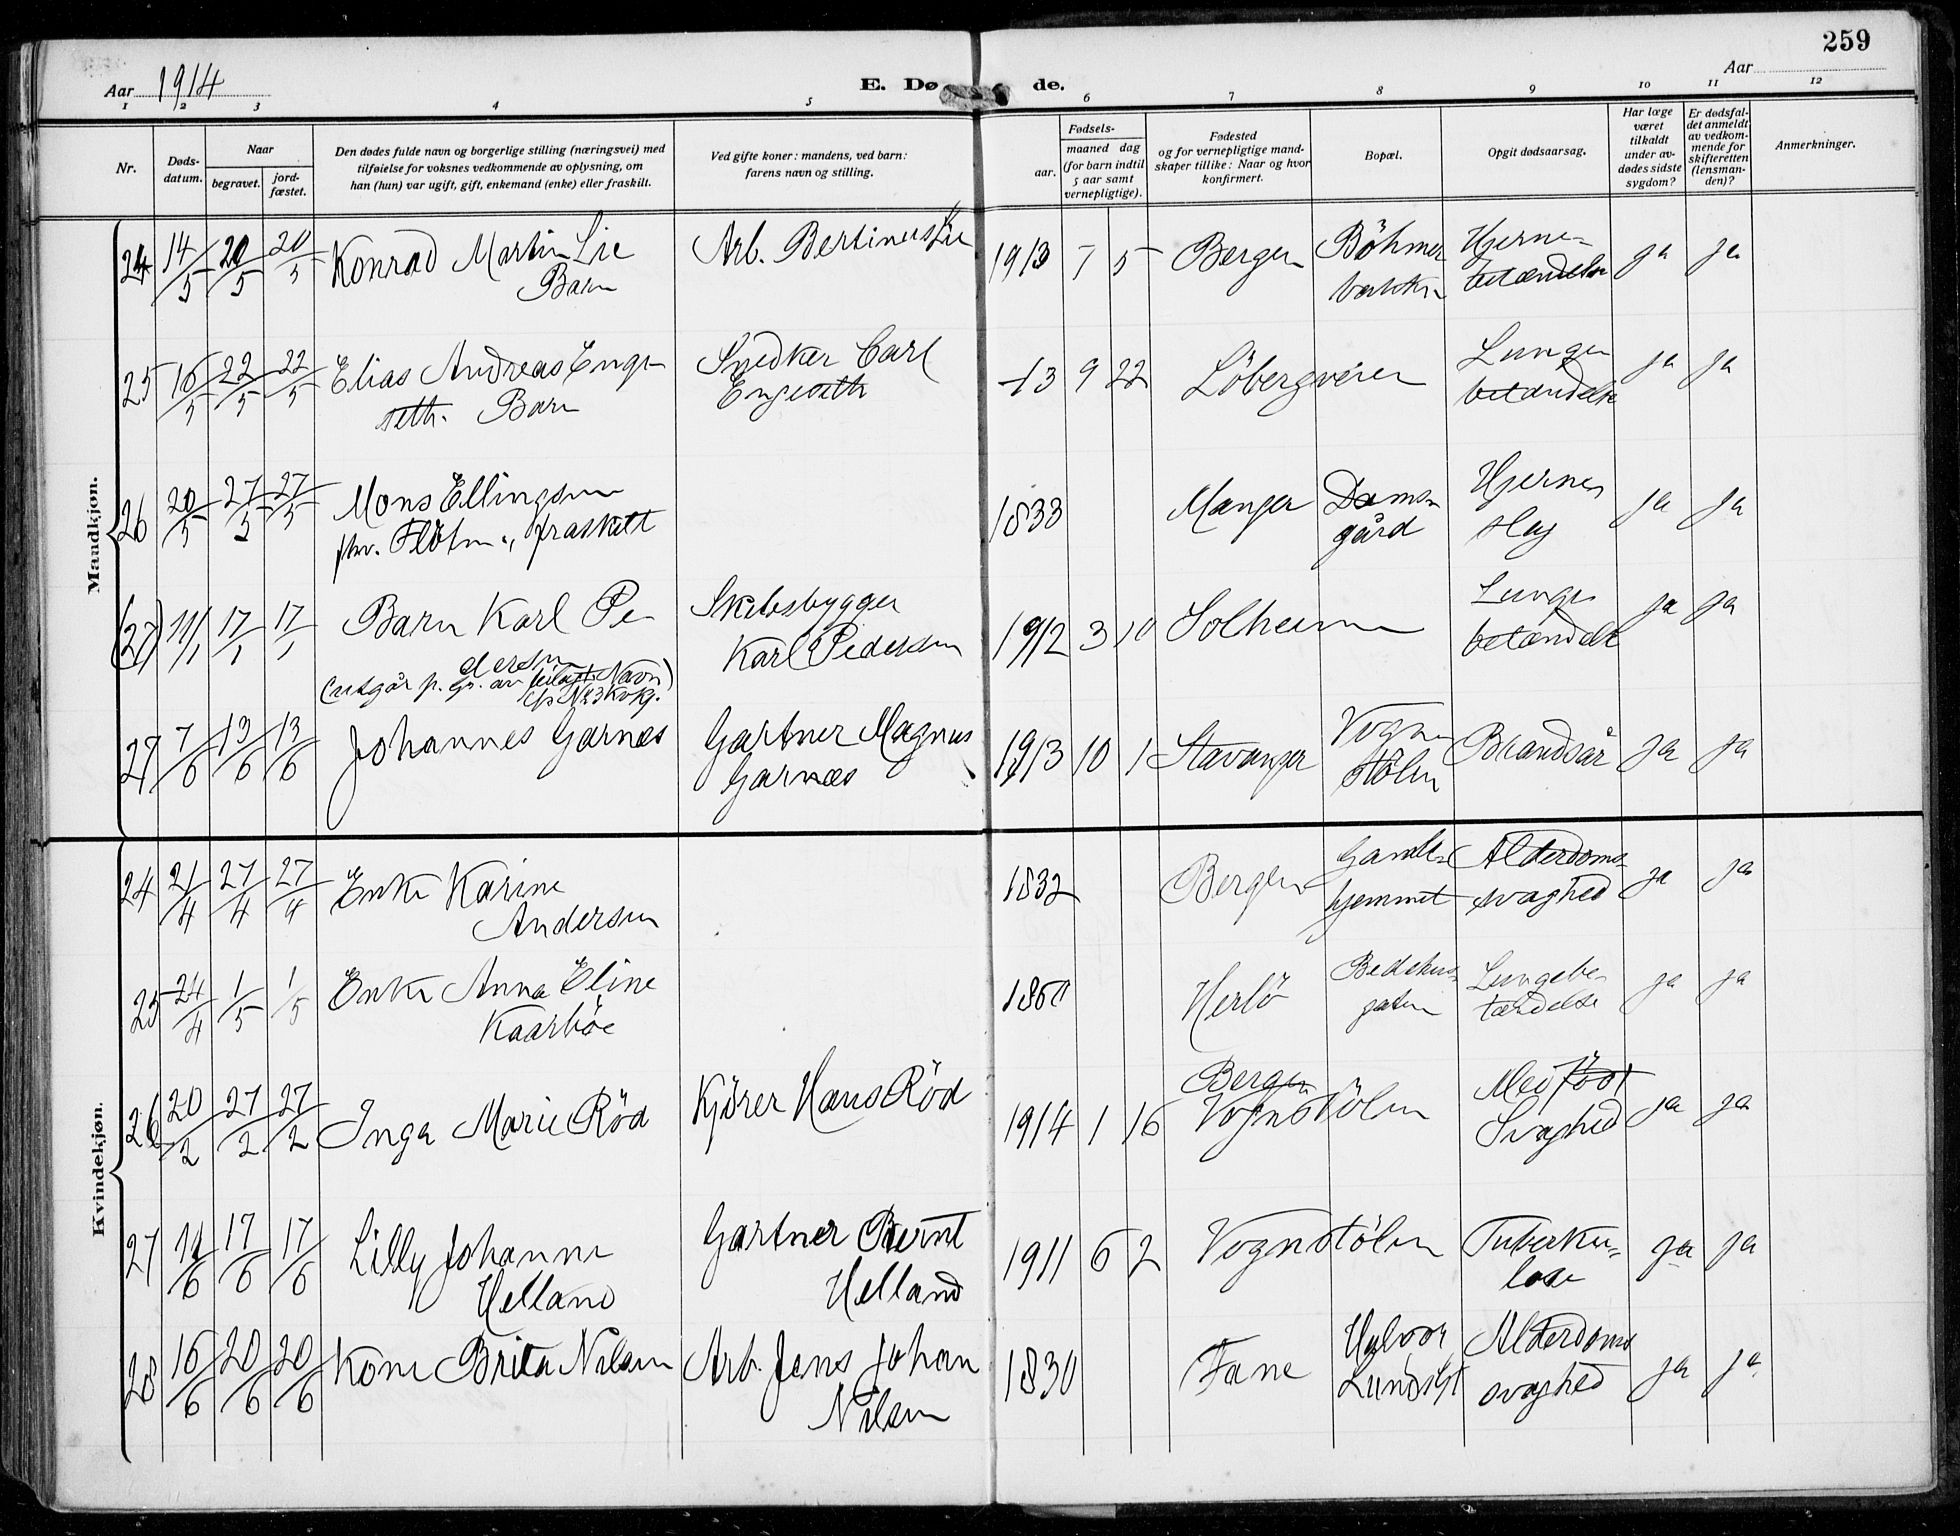 259
Aar 1914
E. Dø de.
Aar
1 2 3 4 5 6 7 8 9 10 11 12
Nr.
Døds-
datum.
Naar
begravet.
jord-
fæstet.
Den dødes fulde navn og borgerlige stilling (næringsvei) med
tilføielse for voksnes vedkommende av oplysning, om
han (hun) var ugift, gift, enkemand (enke) eller fraskilt.
Ved gifte koner: mandens, ved barn:
farens navn og stilling.
Fødsels-
aar.
maaned dag
(for barn indtil
5 aar samt
vernepligtige).
Fødested
og for vernepligtige mand-
skaper tillike: Naar og hvor
konfirmert.
Bopæl.
Opgit dødsaarsag.
Har læge
været
tilkaldt
under av-
dødes sidste
sygdom?
Er dødsfal-
det anmeldt
av vedkom-
mende for
skifteretten
(lensman-
den)?
Anmerkninger.
Maadkjøn.
24 14/5 20/5 20/5 Konrad Martin Lie Arb. Bertinus Lie 1913 7 5 Bergen Böhmer Hjerne- ja ja
Barn bakken betændelse
25 16/5 22/5 22/5 Elias Andreas Enge- Snedker Carl -13 9 22 Löbergveien Lunge ja ja
seth. Barn Engeseth betændelse
26 20/5 27/5 27/5 Mons Ellingsen 1833 Manger Dams- Hjerne ja ja
fhv. Flötm., fraskilt gård slag
(27) 11/1 17/1 17/1 Barn Karl Pe- Skibsbygger 1912 3 10 Solheim Lunge ja ja
dersen Karl Pedersen betændelse
(utgår p. Gr. av Navn)
Nr 3 Kvkj.
27 7/6 13/6 13/6 Johannes Garnæs Gartner Magnus 1913 10 1 Stavanger Vogn- Brandsår ja ja
Garnæs stölen
Kvindekjøn.
24 21/4 27/4 27/4 Enke Karine 1832 Bergen Gamle- Alderdoms- ja ja
Andersen hjemmet svaghed
25 24/4 1/5 1/5 Enke Anna Eline Herlö Bedehus- Lungebe- ja ja
Kaarböe gaten tændelse
26 20/2 27/2 27/2 Inga Marie Röd Kjörer Hans Röd 1914 1 16 Bergen Medfödt ja ja
Vognstölen Svaghed
27 11/6 17/6 17/6 Lilly Johanne Gartner Bernt 1911 6 2 Vognstölen Tuberku- ja ja
Helland Helland lose
28 16/6 20/6 20/6 Kone Brita Nilsen Arb. Jens Johan 1830 Fane Halvor Alderdoms ja ja
Nilsen Lundsgt svaghed